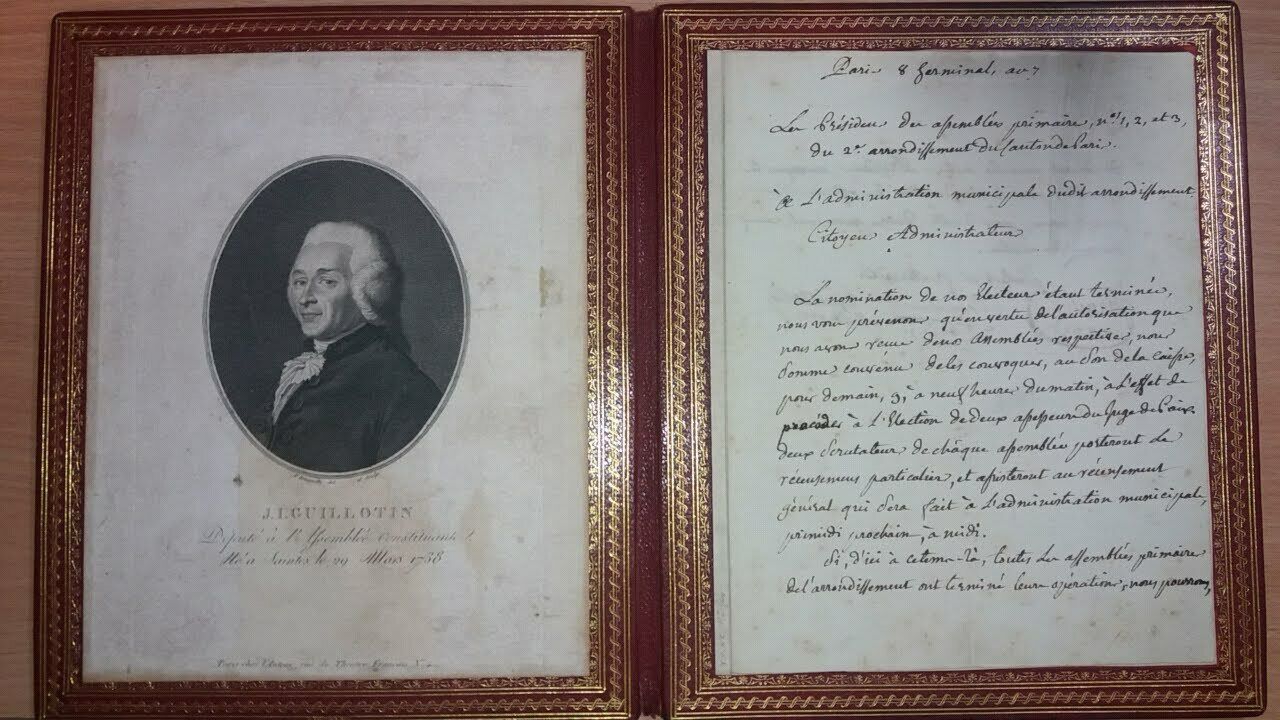 J. I. GUILLOTIN
Député à l'Assemblée Constituante
Né à Saintes le 29 Mars 1738
Paris chez l'Auteur, rue du Théâtre Français N.
Paris 8 Germinal, an 7
Les Présidens des assemblées primaires, nos. 1, 2, et 3,
du 2e. arrondissement du Canton de Paris.
à L'administration municipale dudit arrondissement.
Citoyens Administrateurs
La nomination de nos Electeurs étant terminée,
nous vous prévenons qu'en vertu de l'autorisation que
nous avons reçue de nos assemblées respectives, nous
sommes convenus de les convoquer, au son de la caisse,
pour demain, 9, à neuf heures du matin, à L'effet de
procéder à L'Election de deux assesseurs du Juge de Paix
deux scrutateurs de chaque assemblée porteront le
recensement particulier, et assisteront au recensement
général qui sera fait à L'administration municipale,
primidi prochain, à midi.
Si, d'ici à ce tems-là, toutes les assemblées primaires
de l'arrondissement ont terminé leurs opérations, nous pourrons,